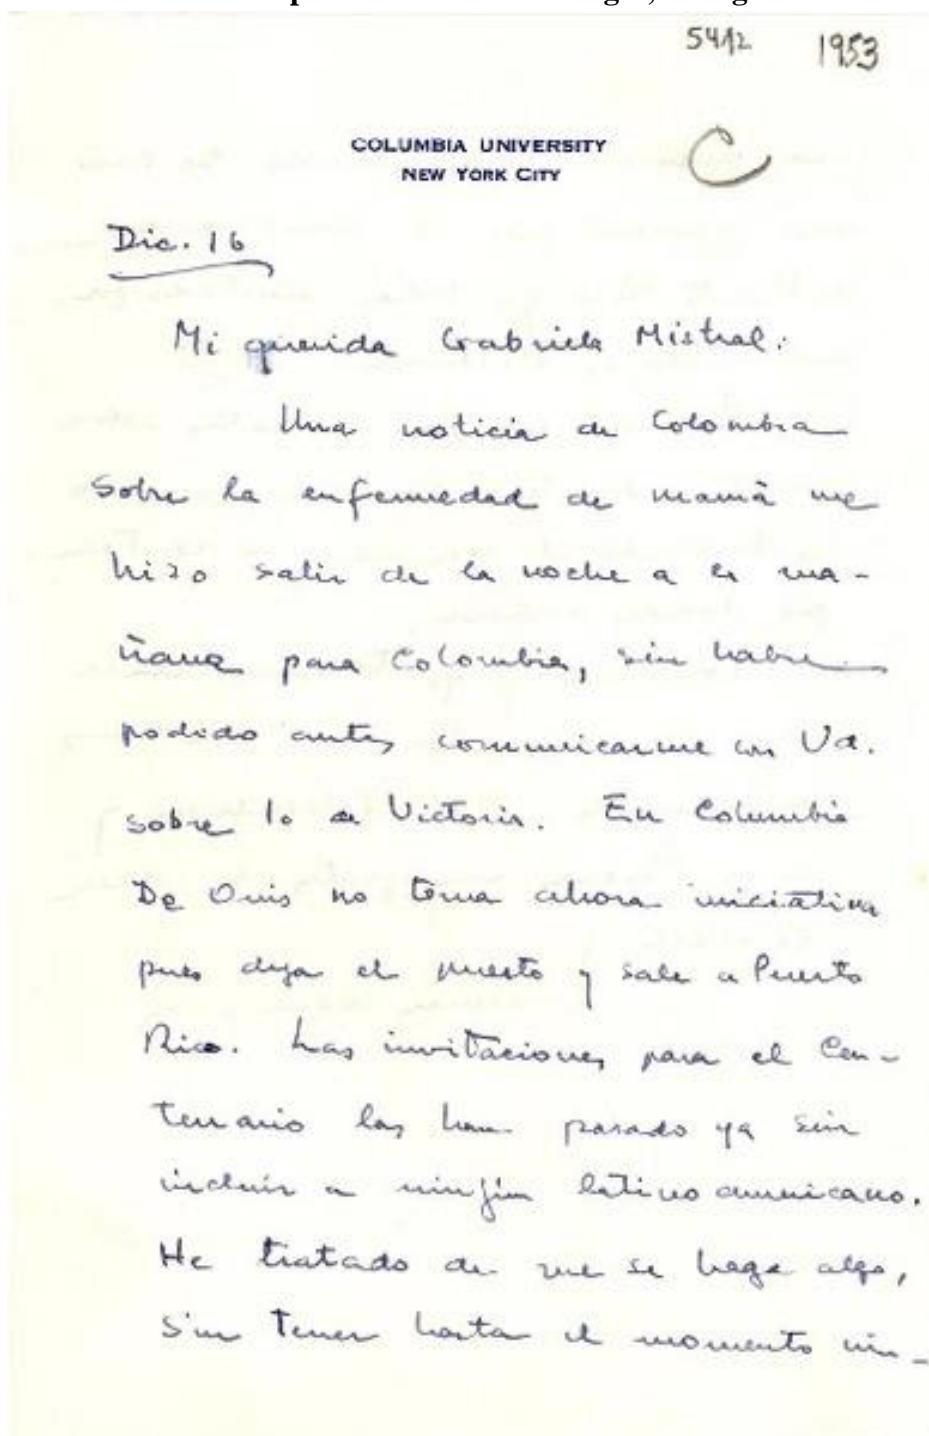 5412 1953
COLUMBIA UNIVERSITY
NEW YORK CITY
C
Dic. 16
Mi querida Gabriela Mistral:
Una noticia de Colombia
sobre la enfermedad de mamá me
hizo salir de la noche a la ma-
ñana para Colombia, sin haber
podido antes comunicarme con Ud.
sobre lo de Victoria. En Columbia
De Onís no toma ahora iniciativa
pues deja el puesto y sale a Puerto
Rico. Las invitaciones para el Cen-
tenario las han pasado ya sin
incluir a ningún latino americano.
He tratado de que se haga algo,
sin tener hasta el momento nin-